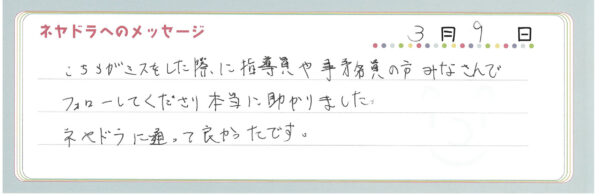 ネヤドラへのメッセージ
3月9日
こちらがミスをした際に指導員や事務員の方みなさんで
フォローしてくださり本当に助かりました。
ネヤドラに通って良かったです。